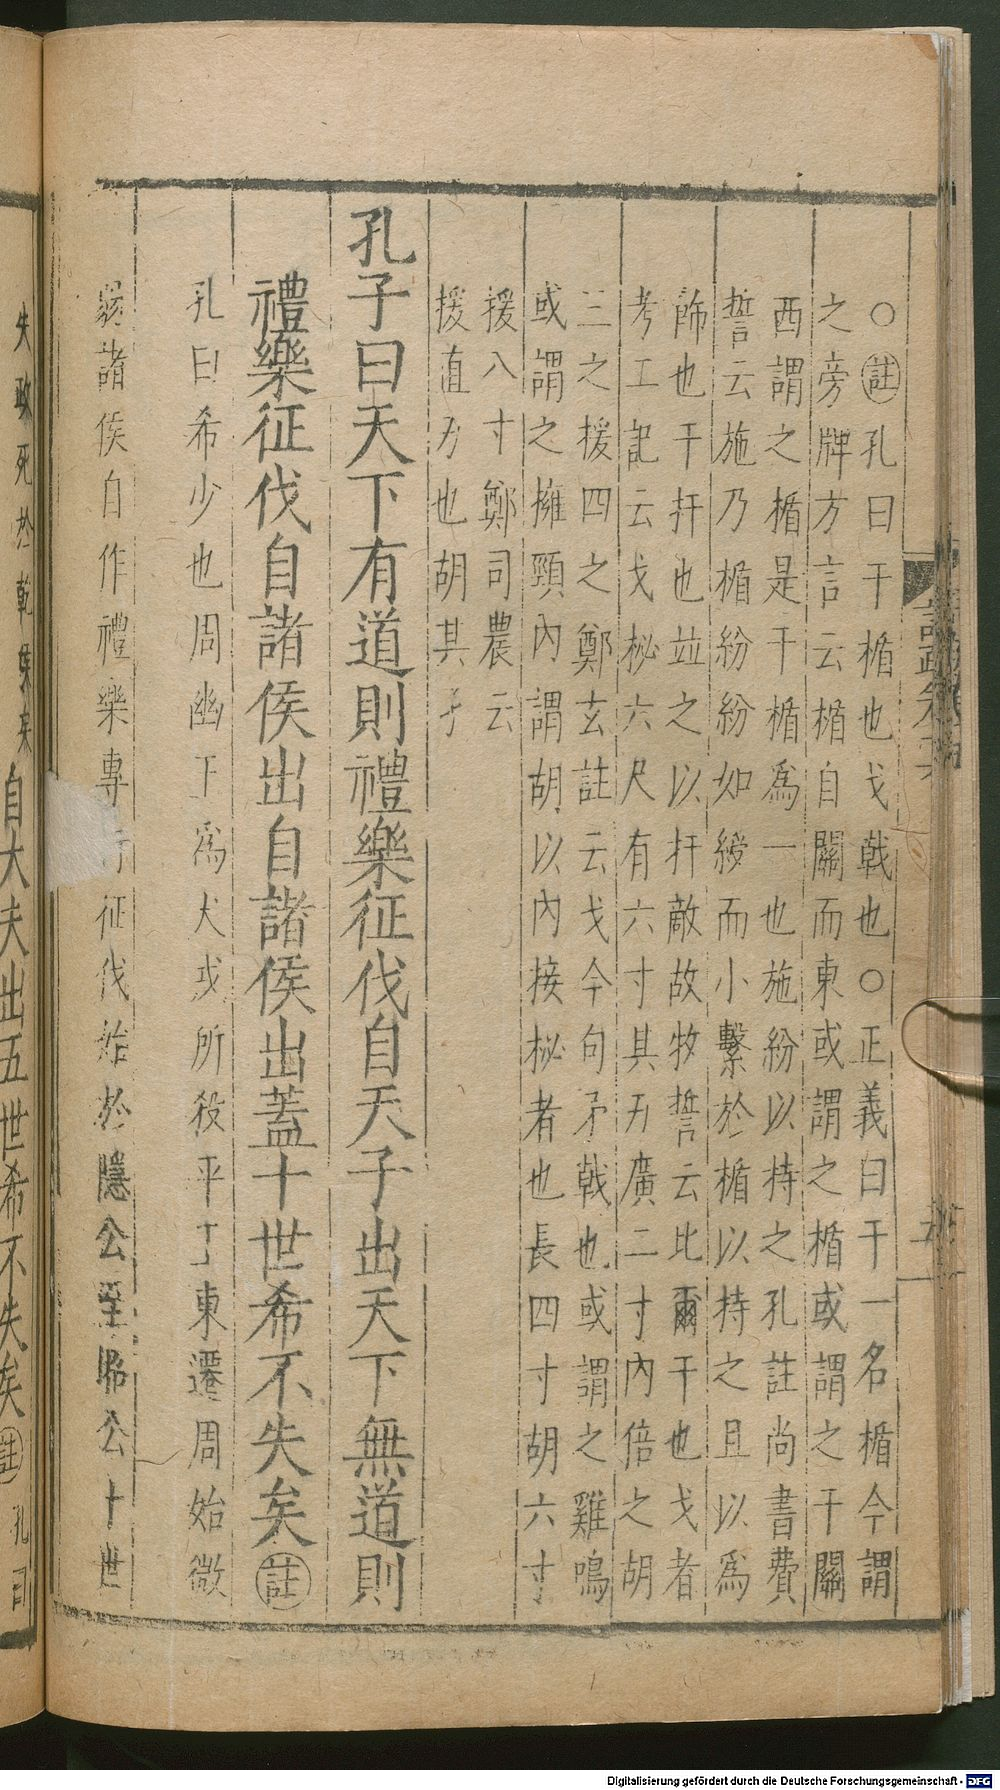 ○註孔曰干楯也戈戟也○正義曰干一名楯今謂
之旁牌方言云楯自關而東或謂之楯或謂之干關
西謂之楯是干楯爲一也施紛以持之孔註尚書費
誓云施乃楯紛紛如綬而小繫於楯以持之且以爲
飾也干扞也並之以扞敵故牧誓云比爾干也戈者
考工記云戈柲六尺有六寸其刃廣二寸內倍之胡
三之援四之鄭玄註云戈今句矛戟也或謂之雞鳴
或謂之擁頸內謂胡以內接柲者也長四寸胡六寸
援八寸鄭司農云
援直刃也胡其孑
孔子曰天下有道則禮樂征伐自天子出天下無道則
禮樂征伐自諸侯出自諸侯出蓋十世希不失矣註
孔曰希少也周幽王爲犬戎所殺平王東遷周始微
弱諸侯自作禮樂專行征伐始於隱公至昭公十世
失政死於乾矦矣自大夫出五世希不失矣註孔曰
五
Digitalisierung gefördert durch die Deutsche Forschungsgemeinschaft - DFG